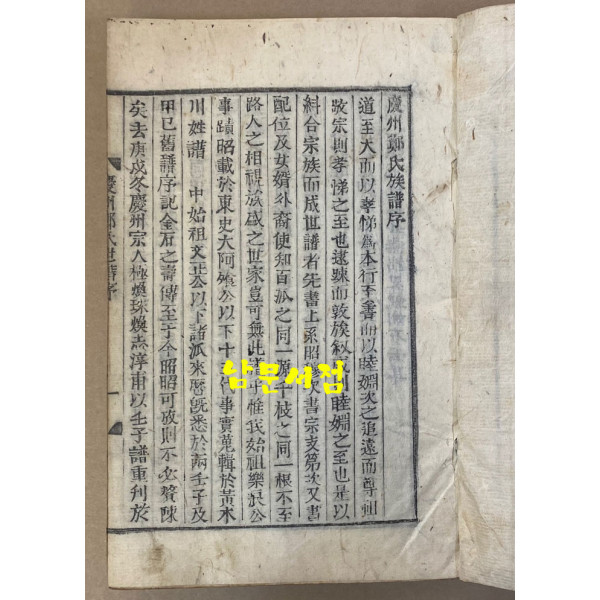 慶州鄭氏族譜序
道至大而以孝悌爲本行至善而以睦婣次之追遠而尊祖
敬宗則孝悌之至也遠踈而敦族叙 則睦婣之至也是以
糾合宗族而成世譜者先書上系昭穆次書宗支第次又書
配位及女婿外裔使知百派之同一源千枝之同一根不至
路人之相視族盛之世家豈可無此譜 惟我始祖樂浪公
事蹟昭載於東史大阿飡公以下十三代事實蒐輯於黃木
川姓譜 中始祖文正公以下諸派來歷旣悉於兩壬子及
甲巳舊譜序記金石之壽傳至于今昭昭可攷則不必贅陳
矣去庚戌冬慶州宗人極煥珠煥 淳甫以壬子譜重刊於
慶州鄭氏世譜序
一
남문서점